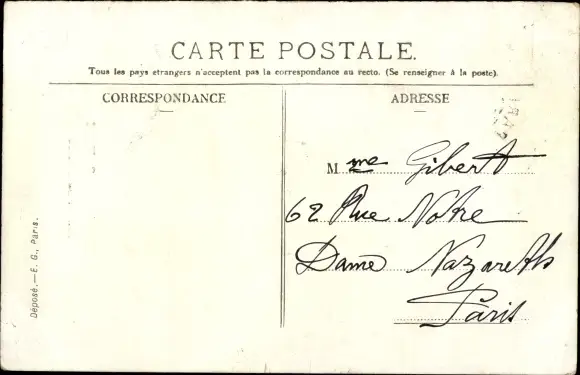 CARTE POSTALE.
Tous les pays étrangers n'acceptent pas la correspondance au recto. (Se renseigner à la poste).
CORRESPONDANCE
ADRESSE
Mme Gibert
62 Rue Notre
Dame Nazareth
Paris
Déposé.—E. G., Paris.